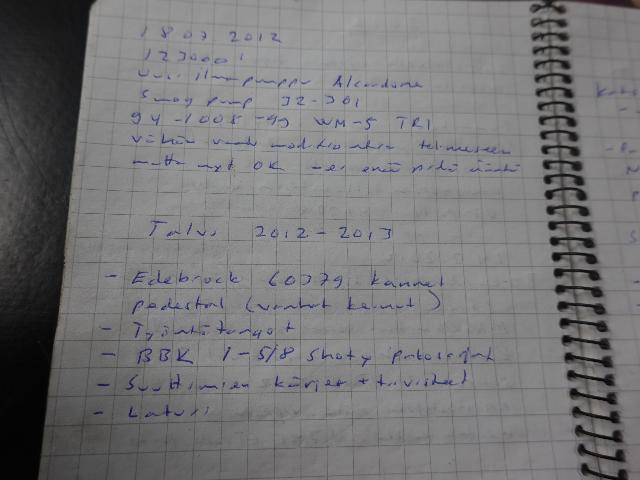 18 07 2012
123000
uusi ilmapumppu A1cardone
Smog pump 32-301
94-1005-93 WM-5 TR1
vaati modifiointia telineeseen
mutta nyt OK - ei enää pidä ääntä
Talvi 2012-2013
- Edebrock 60379 kannet
pedestal (vanhat keinut)
- Työntötangot
- BBK 1-5/8 Shoty pakosarjat
- Suuttimien kärjet + tiivisteet
- Laturi